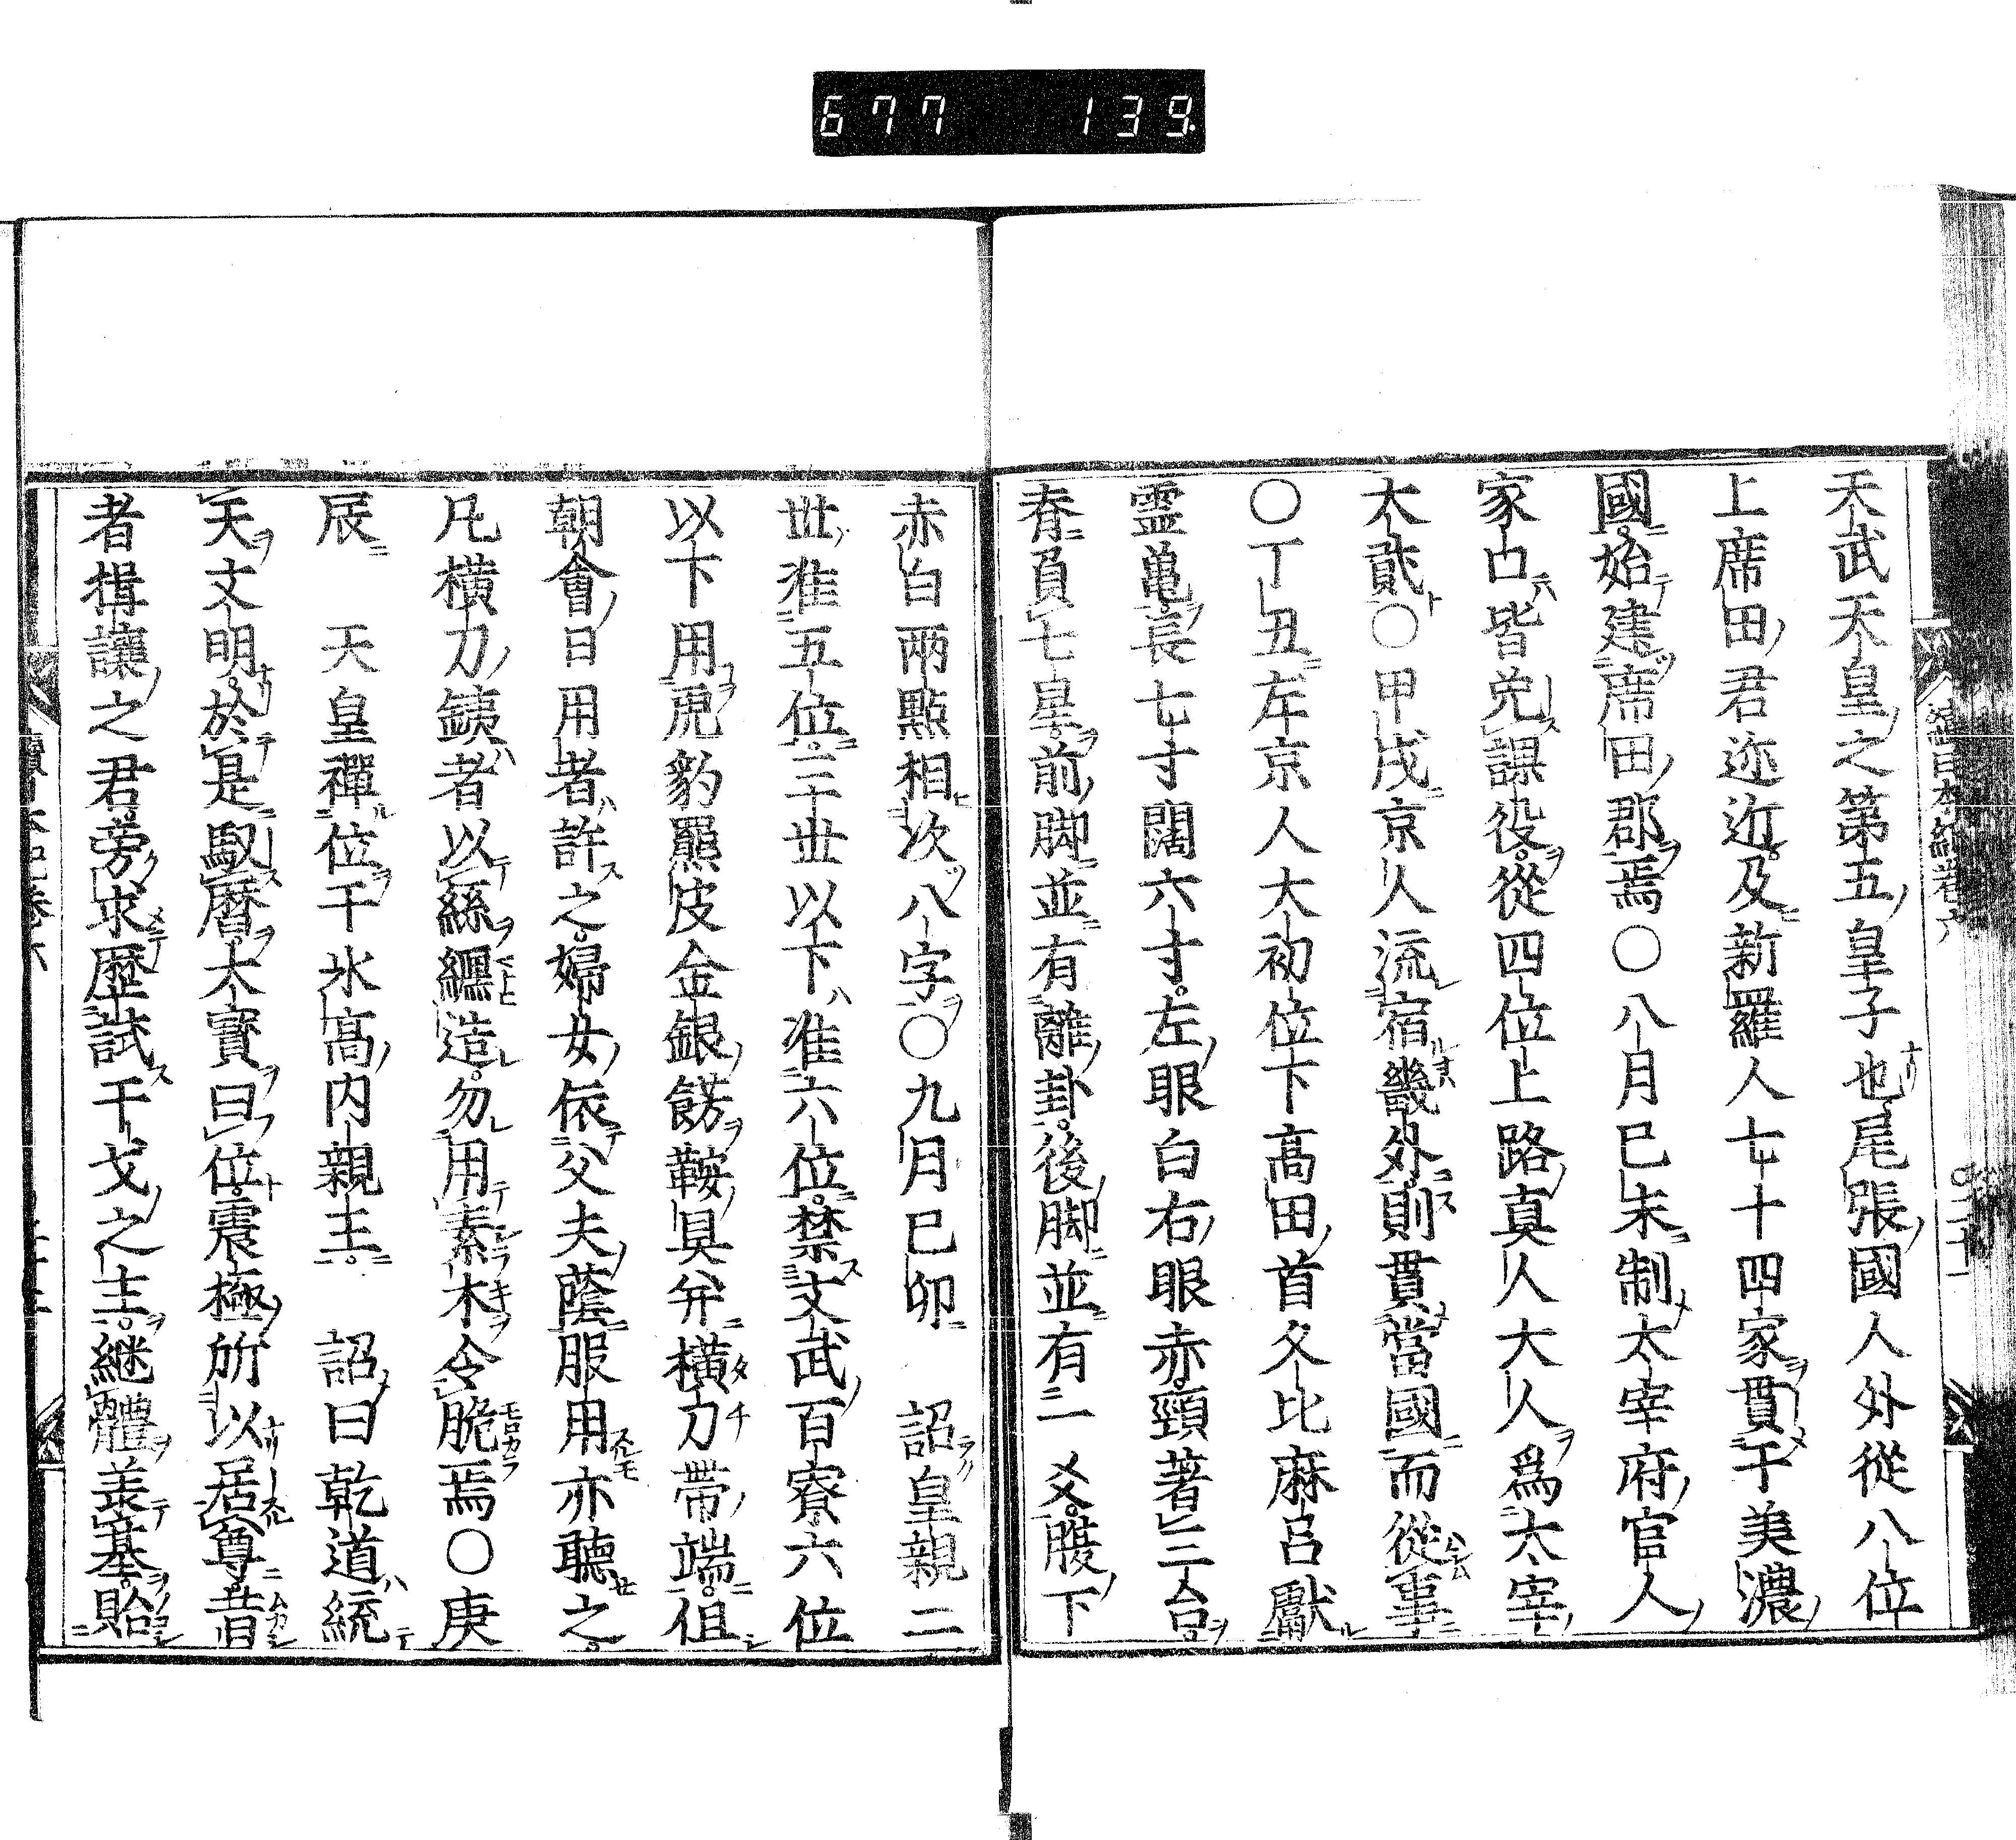 677 139.
天武天皇之第五皇子也尾張國人外從八位
上席田君迩近及新羅人七十四家貫于美濃
國始建席田郡焉○八月已未制太宰府官人
家口皆免課役從四位上路真人大人爲太宰
大貳○甲戌京人流宿畿外則貫當國而從事
○丁丑左京人大初位下髙田首久比麻呂獻
霊龜長七寸闊六寸左眼白右眼赤頸著三台
脊負七星前脚並有離卦後脚並有二爻腹下
赤白兩點相次八字○九月已卯 詔皇親二
世准五位三世以下准六位禁文武百寮六位
以下用虎豹羆皮金銀餝鞍具并横刀帶端但
朝會日用者許之婦女依父夫蔭服用亦聽之
凡横刀鋏者以絲纒造勿用素木令脆焉○庚
辰 天皇禪位于氷髙内親王 詔曰乾道統
天文明於是馭暦大寳曰位震極所以居尊昔
者揖讓之君旁求歴試干戈之主継體羨基貽